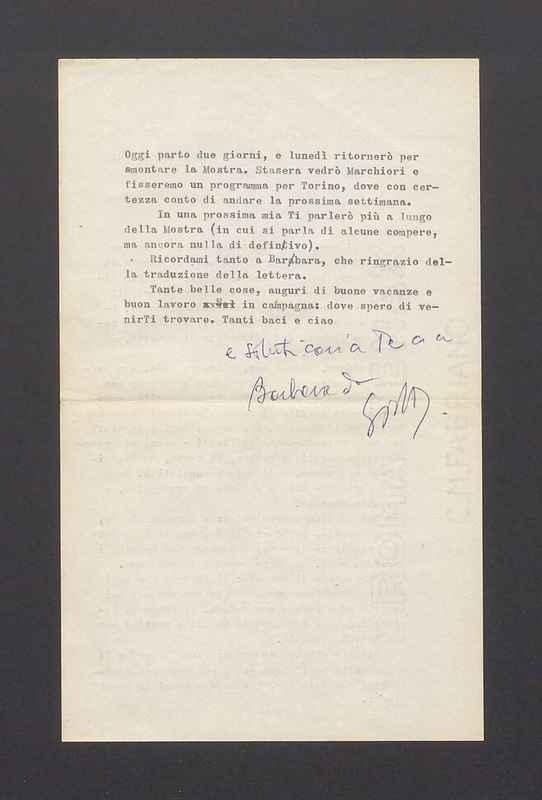 Oggi parto due giorni, e lunedì ritornerò per
smontare la Mostra. Stasera vedrò Marchiori e
fisseremo un programma per Torino, dove con cer-
tezza conto di andare la prossima settimana.
In una prossima mia Ti parlerò più a lungo
della Mostra (in cui si parla di alcune compere,
ma ancora nulla di definitivo).
Ricordami tanto a Barbara, che ringrazio del-
la traduzione della lettera.
Tante belle cose, auguri di buone vacanze e
buon lavoro in campagna: dove spero di ve-
nirTi trovare. Tanti baci e ciao
e saluti cari a Te a a
Barbara da